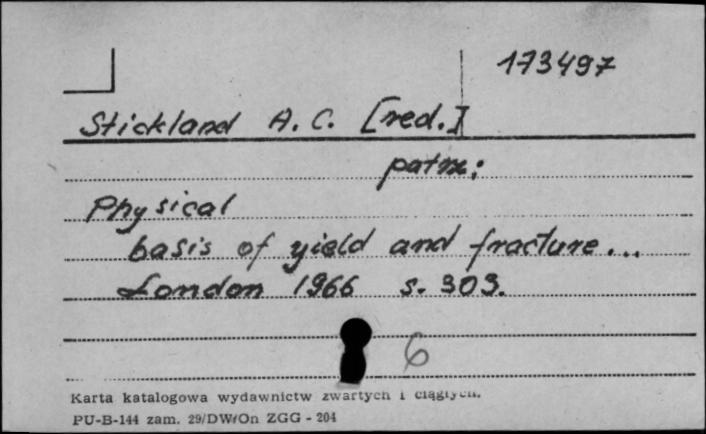 173497
Stickland A. C. [red.]
patrz:
Physical
basis of yield and fracture...
London 1966 s. 303.
6
Karta katalogowa wydawnictw zwartych i ciągłych.
PU-B-144 zam. 29/DWrOn ZGG - 204